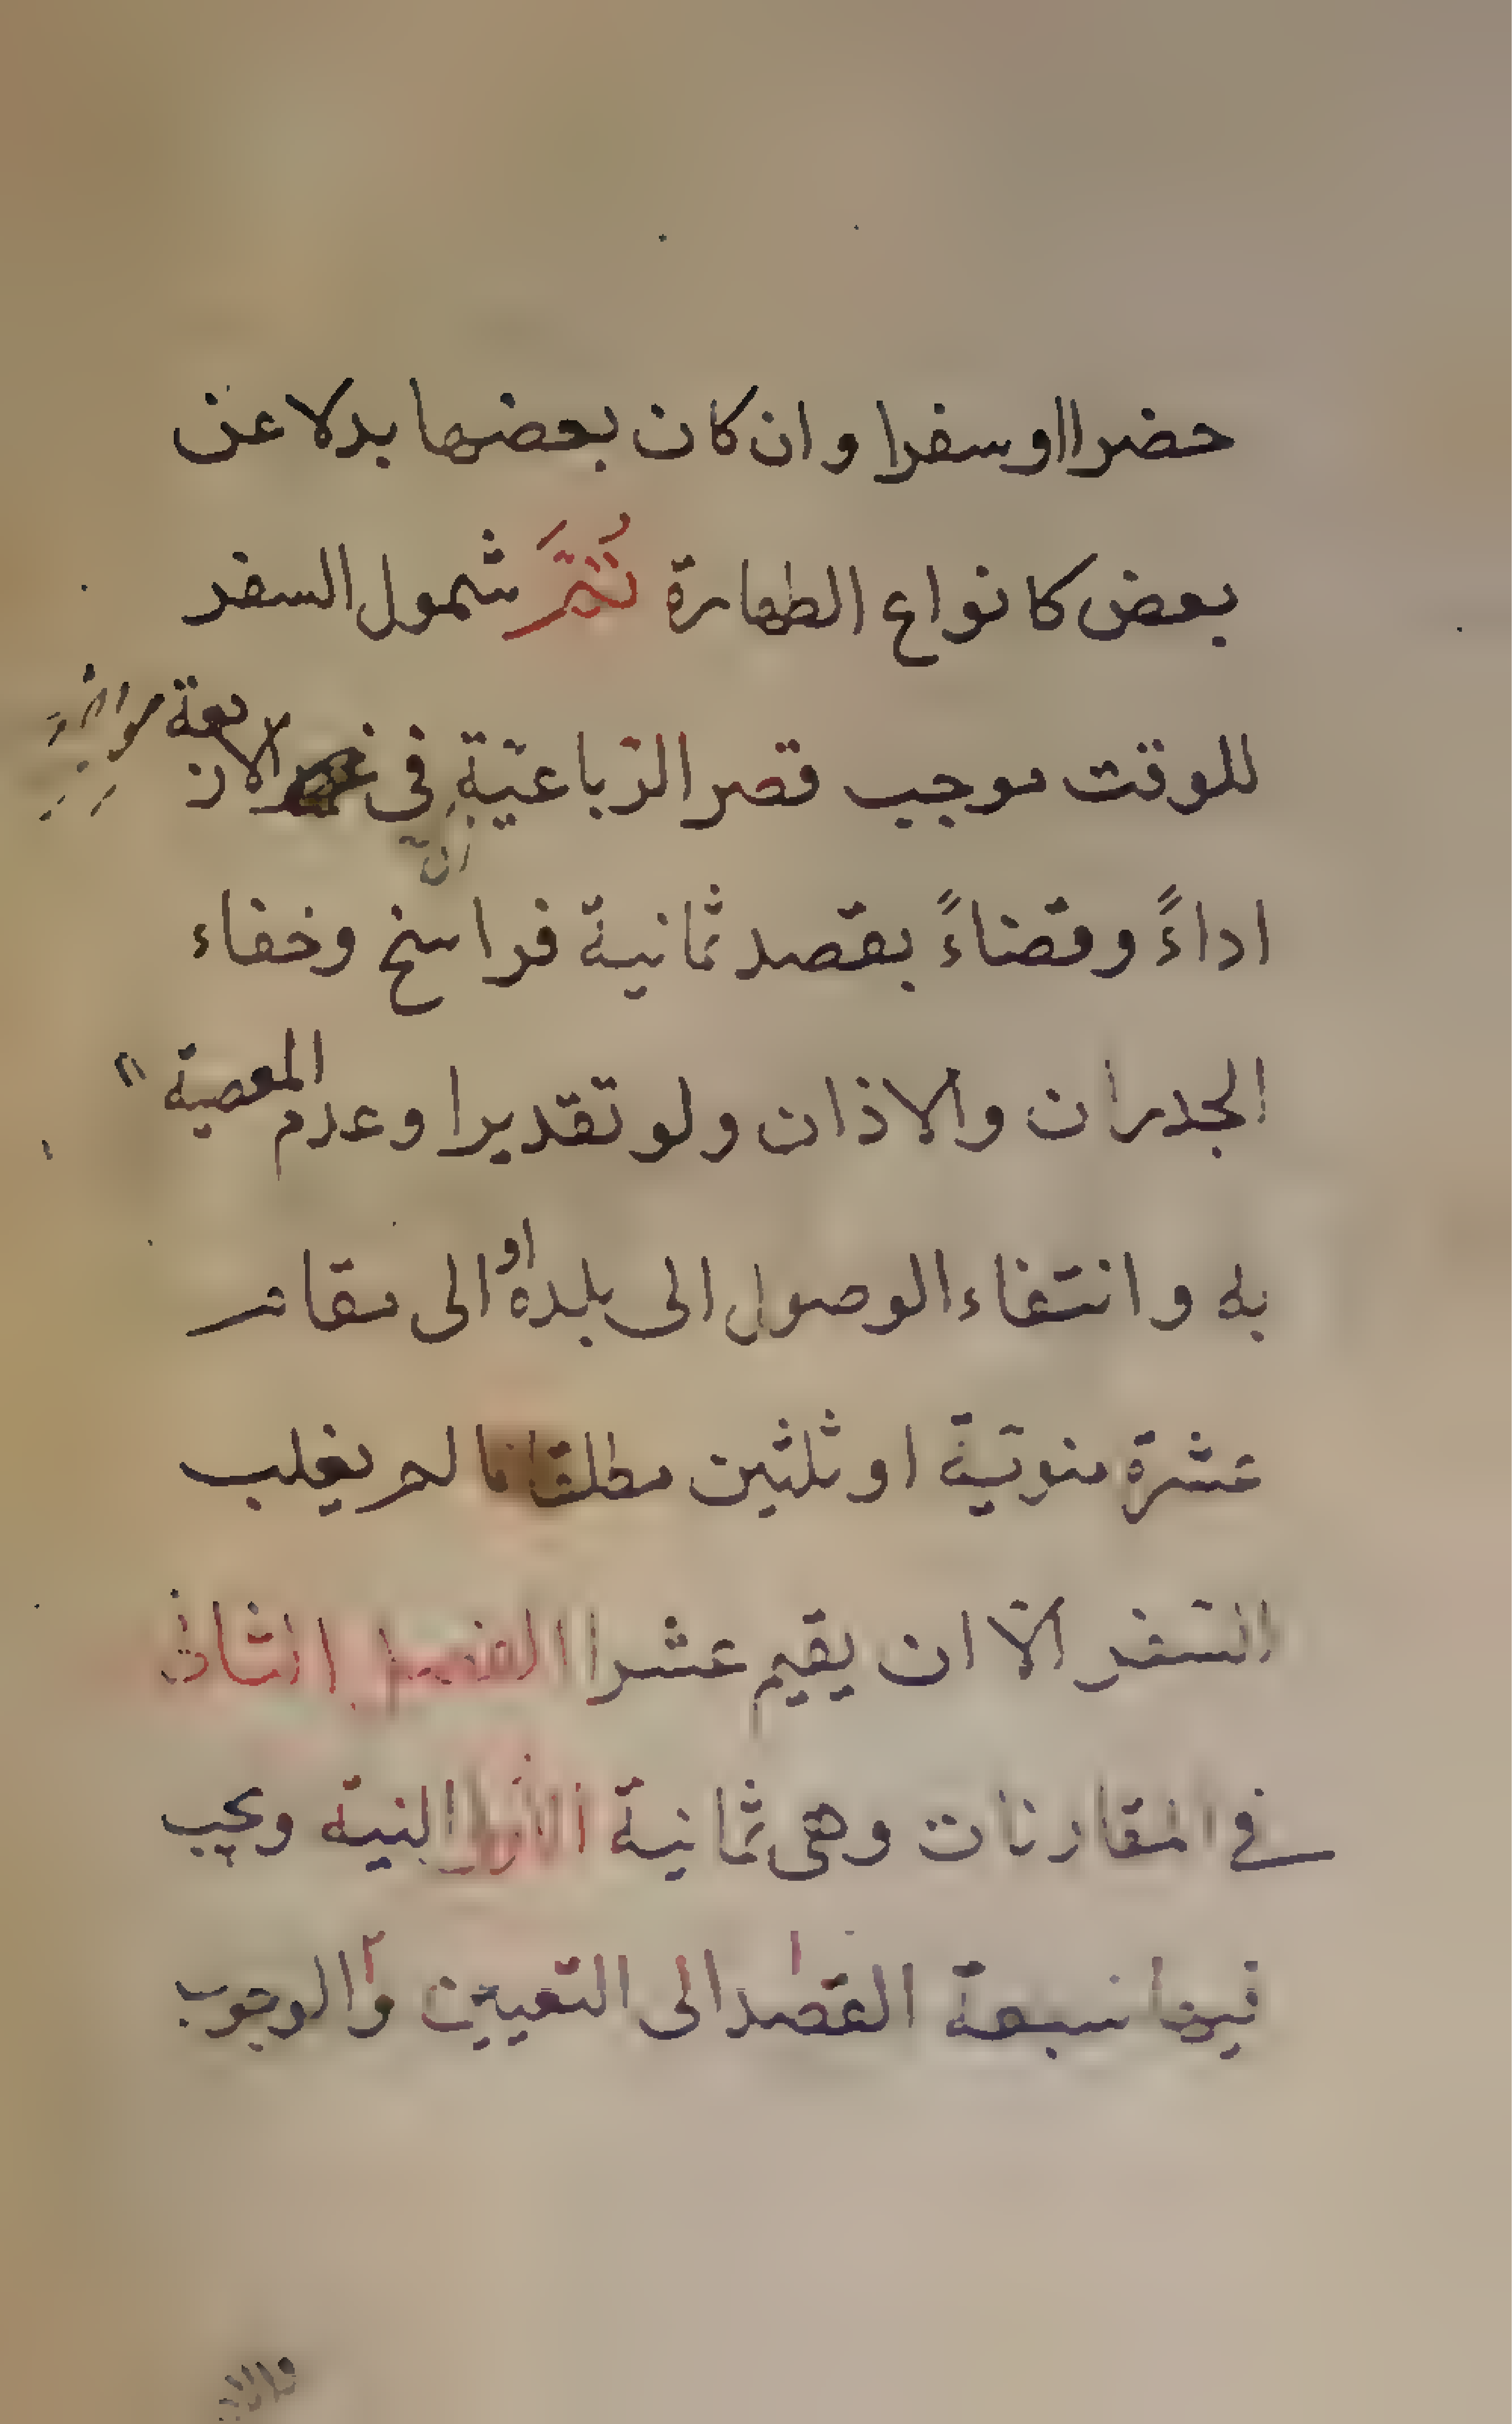 حضرا او سفرا وان كان بعضها بدلا عن
بعض كانواع الطهارة ثُمَّ شمول السفر
للوقت موجب قصر الرّباعيّة في غير الاربعة
اداءً وقضاءً بقصد ثمانية فراسخ وخفاء
الجدران والاذان ولو تقديرا وعدم المعصية
به وانتفاء الوصول الى بلده او الى مقام
عشرة منويّة او ثلثين مطلقا ما لم يغلب
السّفر الّا ان يقيم عشرا الفصل الثانى
في المقارنات وهى ثمانية الأول النيّة ويجب
فيها سبعة القصد الى التّعيين والوجوب